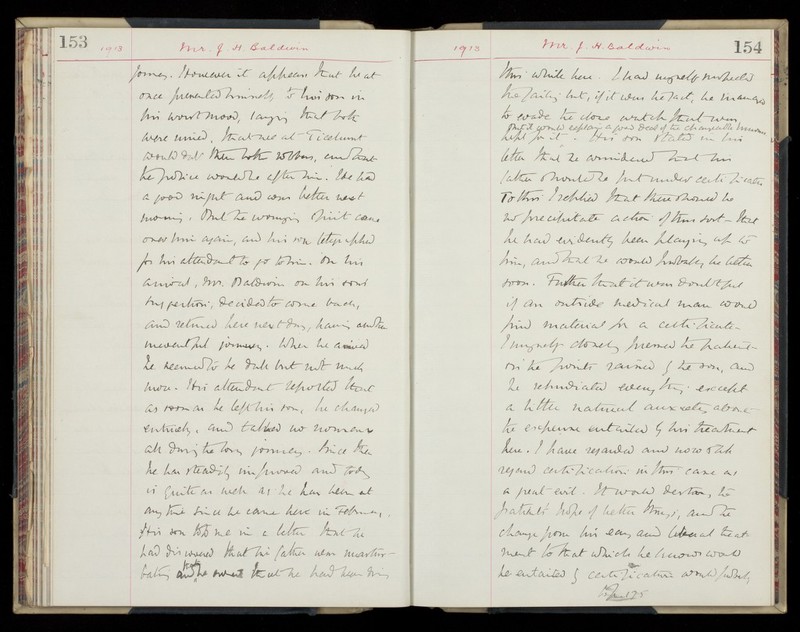 153
1913
Mr. J. H. Baldwin
journey. However it appears that he at
once presented himself to his son in
his worst mood, saying that both
were ruined, that we at Ticehurst
would both robbers, and that
the police would be after him. He had
a good night and was better next
morning. But the worrying spirit came
over him again, and his son telegraphed
for his attendant to go to him. On his
arrival, Mr. Baldwin on his son's
suggestion, decided to come back,
and returned here next day, having another
uneventful journey. When he arrived
he seemed to be dull but not much
more. His attendant reported that
as soon as he left his son, he changed
entirely, and talked no nonsense
all during the long journey. Since then
he has steadily improved and today
is quite as well as he has been at
any time since he came here in February.
His son told me in a letter that he
had discovered that his father was mastur-
bating and that he owned that he had been doing
1913
Mr. J. H. Baldwin
154
this while here. I had myself suspected
the failing but, if it was the fact, he managed
to evade the close watch that was
kept for it. His son stated in his
But it would explain a good deal of the changeable humours
letter that he considered that his
father should be put under certificates
To this I replied that there should be
no precipitate action of this sort - that
he had evidently been playing up to
him, and that he would probably be better
soon. Further that it was doubtful
if an outside medical man would
find material for a certificate.
I myself closely pressed the patient
on the points raised by the son, and
he repudiated everything except
a little natural anxiety about
the expense entailed by his treatment
here. I have regarded and now still
regard certification in this case as
a great evil. It would destroy the
patient's hope of better things, and the
change from his easy and liberal treat-
ment to that which he knows would
be entailed by certification would